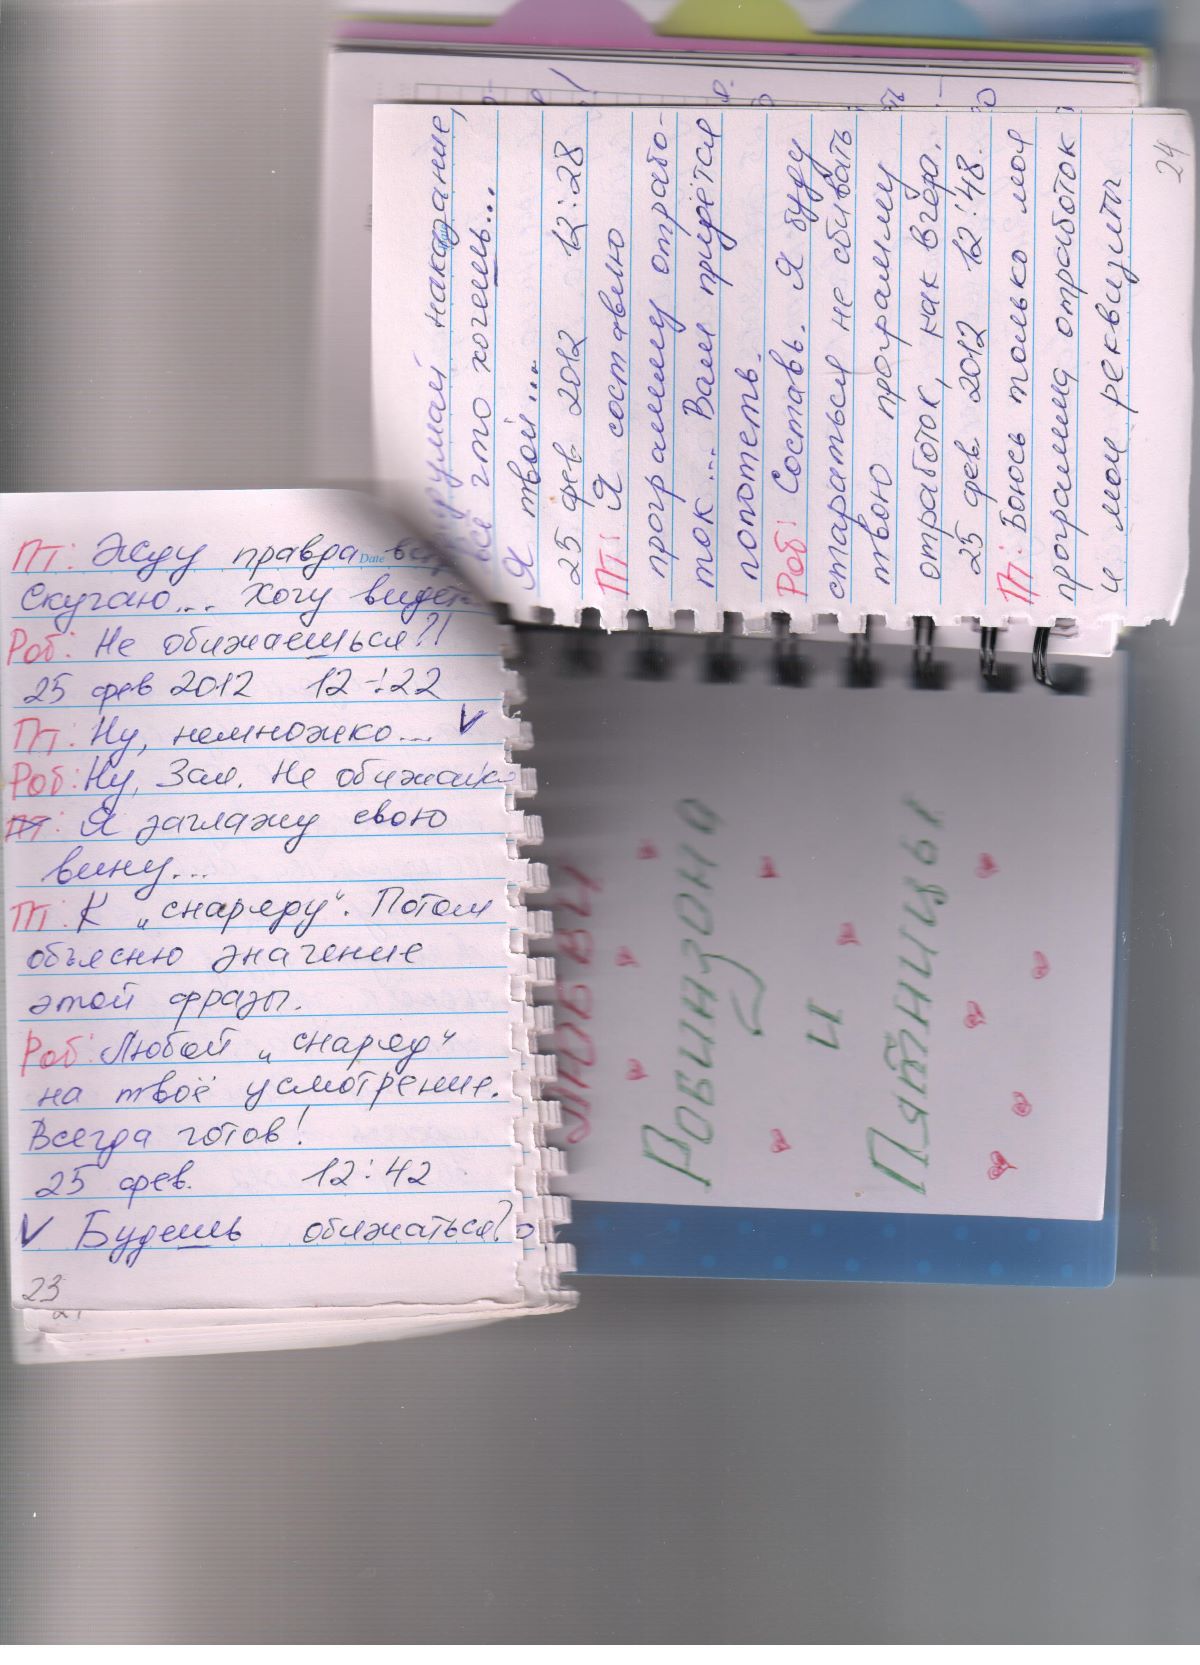 Пт: Жду правда
Скучаю... Хочу
Роб: Не обижаешься?!
25 фев 2012 12:22
Пт: Ну, немножко... V
Роб: Ну, Зая. Не обижайся
Пт: Я заглажу свою
вину...
Пт: К „снаряду“. Потом
объясню значение
этой фразы.
Роб: Любой „снаряд“
на твоё усмотрение.
Всегда готов!
25 фев. 12:42
V Будешь обижаться?
23
наказание,
всё что хочешь...
Я твой...
25 фев 2012 12:28
Пт: Я составлю
программу отрабо-
ток... Вам придётся
попотеть.
Роб: Составь. Я буду
стараться не сбивать
твою программу
отработок, как вчера.
25 фев 2012 12:48.
Пт: Боюсь только моя
программа отработок
и мои реквизиты
24
ЛЮБВИ
Робинзона
и
Пятницы